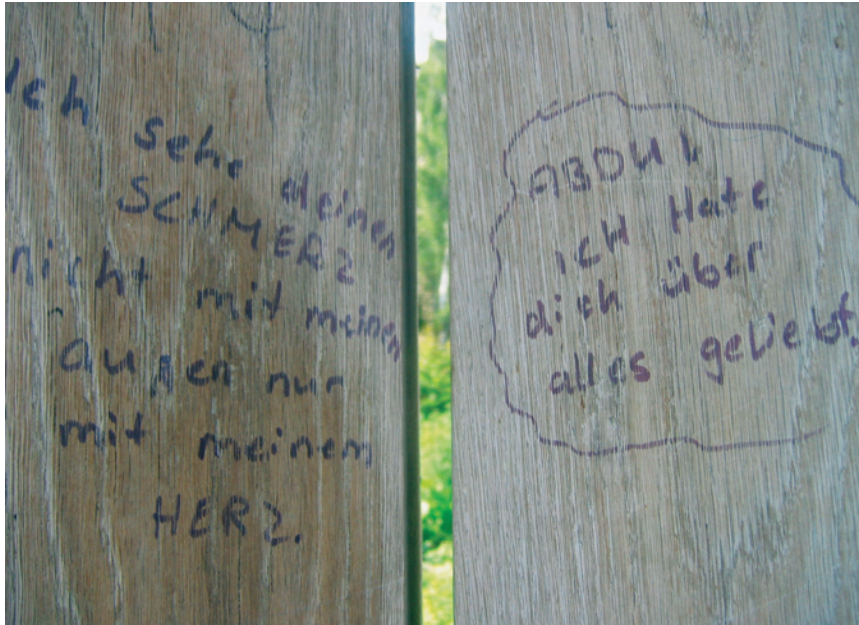 Ich
sehe deinen
SCHMERZ
nicht mit meinen
augen nur
mit meinem
HERZ.
ABDUL
ICH Hate
dich über
alles geliebt.